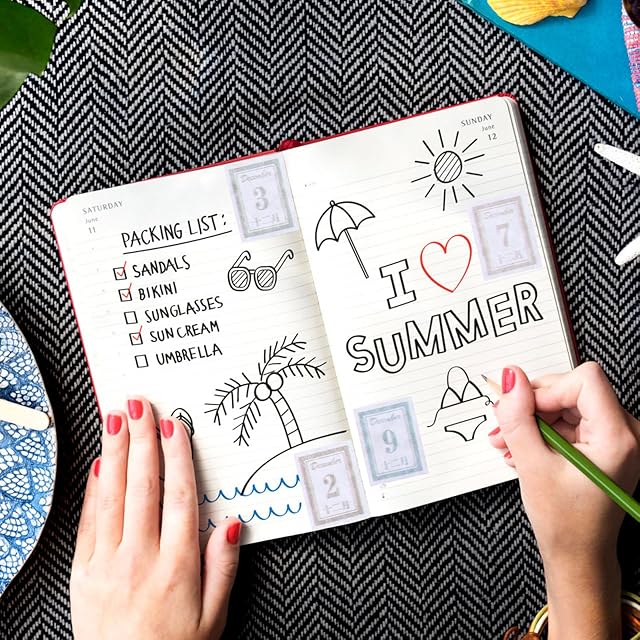 SATURDAY
June
11
PACKING LIST:
SANDALS
BIKINI
SUNGLASSES
SUN CREAM
UMBRELLA
December
3
December
2
SUNDAY
June
12
December
7
I
SUMMER
December
9